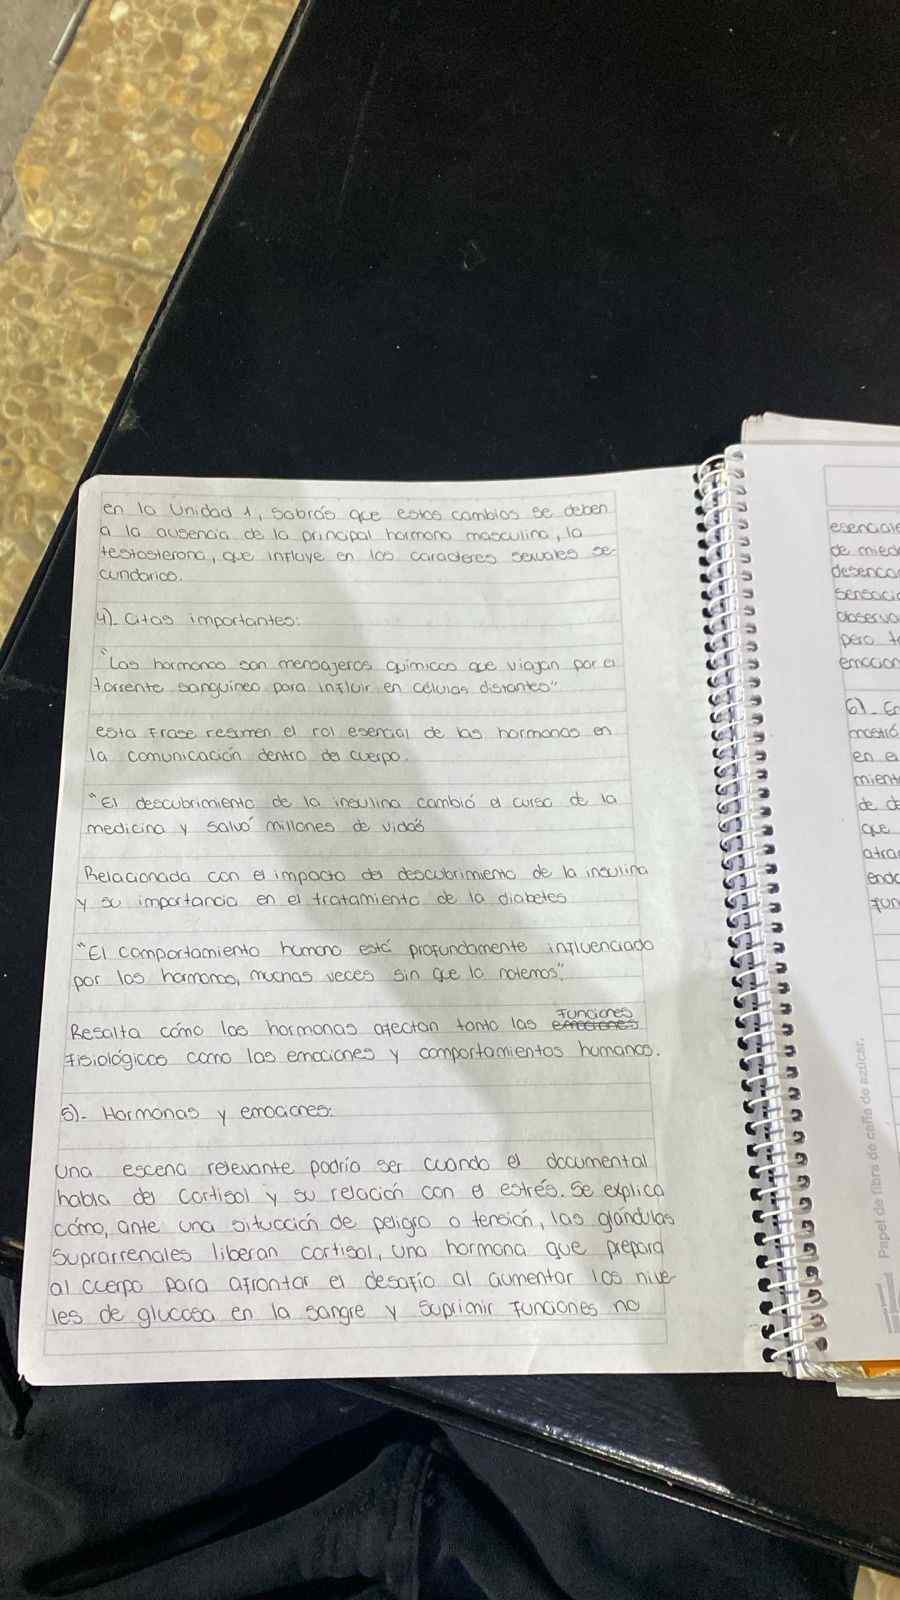 en la Unidad 1, sabrás que estos cambios se deben
a la ausencia de la principal hormona masculina, la
testosterona, que influye en los caracteres sexuales se-
cundarios.
4)- Citas importantes:
"Las hormonas son mensajeros químicos que viajan por el
torrente sanguíneo para influir en células distantes"
esta frase resumen el rol esencial de las hormonas en
la comunicación dentro del cuerpo.
"El descubrimiento de la insulina cambió el curso de la
medicina y salvó millones de vidas
Relacionada con el impacto del descubrimiento de la insulina
y su importancia en el tratamiento de la diabetes
"El comportamiento humano está profundamente influenciado
por las hormonas, muchas veces sin que lo notemos".
Resalta cómo las hormonas afectan tanto las funciones
fisiológicas como las emociones y comportamientos humanos.
5)- Hormonas y emociones:
Una escena relevante podría ser cuando el documental
habla del cortisol y su relación con el estrés. Se explica
cómo, ante una situación de peligro o tensión, las glándulas
suprarrenales liberan cortisol, una hormona que prepara
al cuerpo para afrontar el desafío al aumentar los nive-
les de glucosa en la sangre y suprimir funciones no
esenciale
de mied
desenca
sensaci
observa
pero t
emocion
6)- En
mostró
en e
mient
de d
que
atra
endo
fun
Papel de fibra de caña de azúcar.